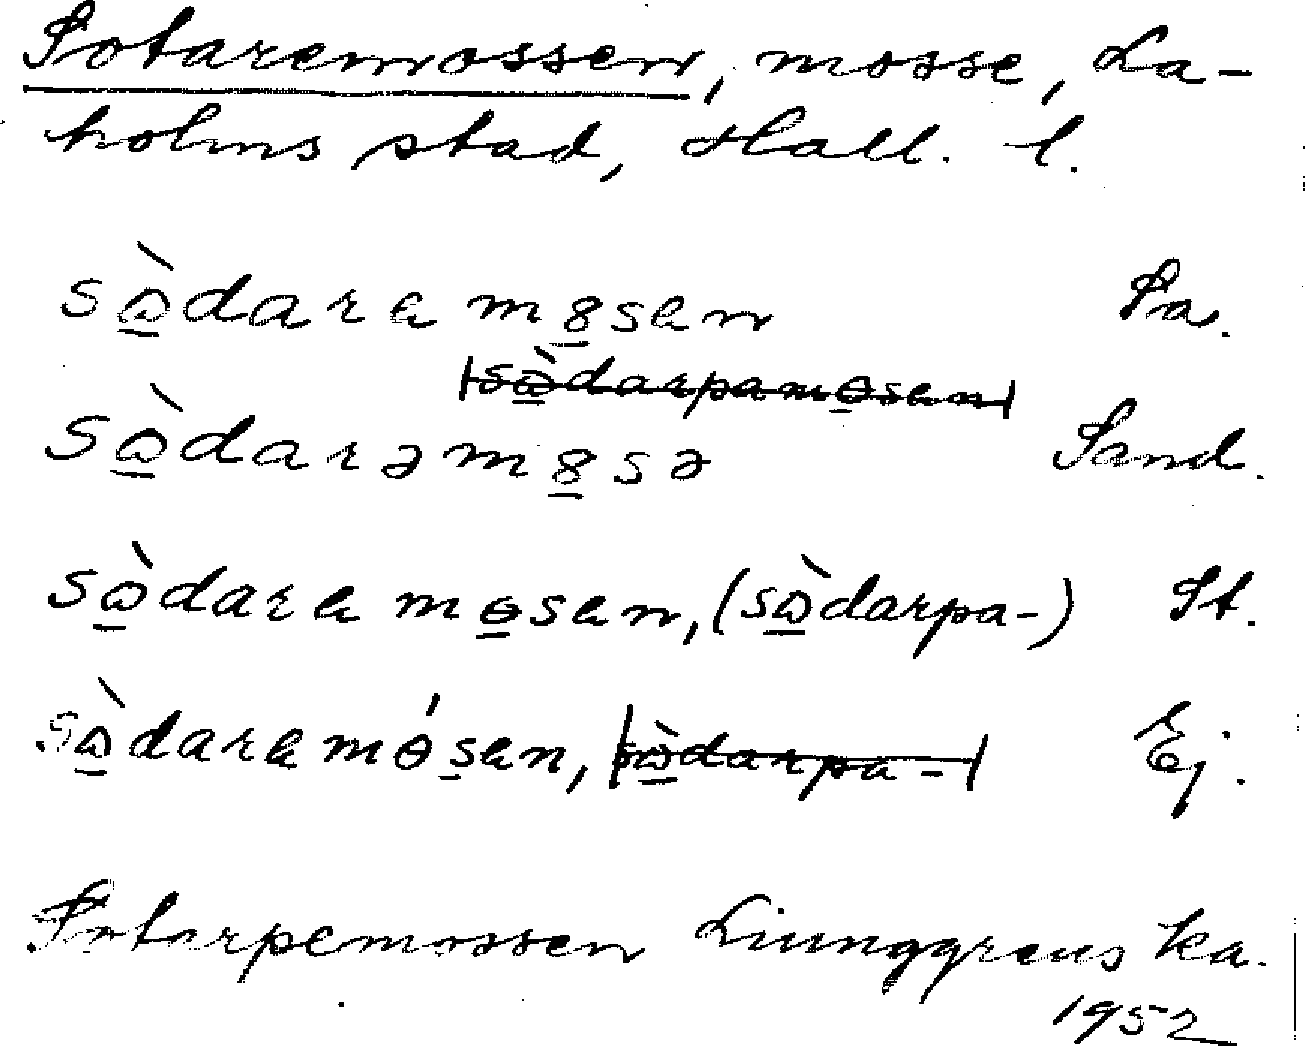 Sotaremossen, mosse, La-
holms stad, Hall. l.
sὼ̲darɐm8̲sɐn Sa.
sὼ̲darpamɵ̲sɐn
sὼ̲darəm8̲sə Sand.
sὼ̲darɐmɵ̲sɐn, (sὼ̲darpa-) St.
sὼ̲darɐmɵ́s̲ɐn, sὼ̲darpa- Ej.
Sotarpemossen Ljunggrens ka.
1952